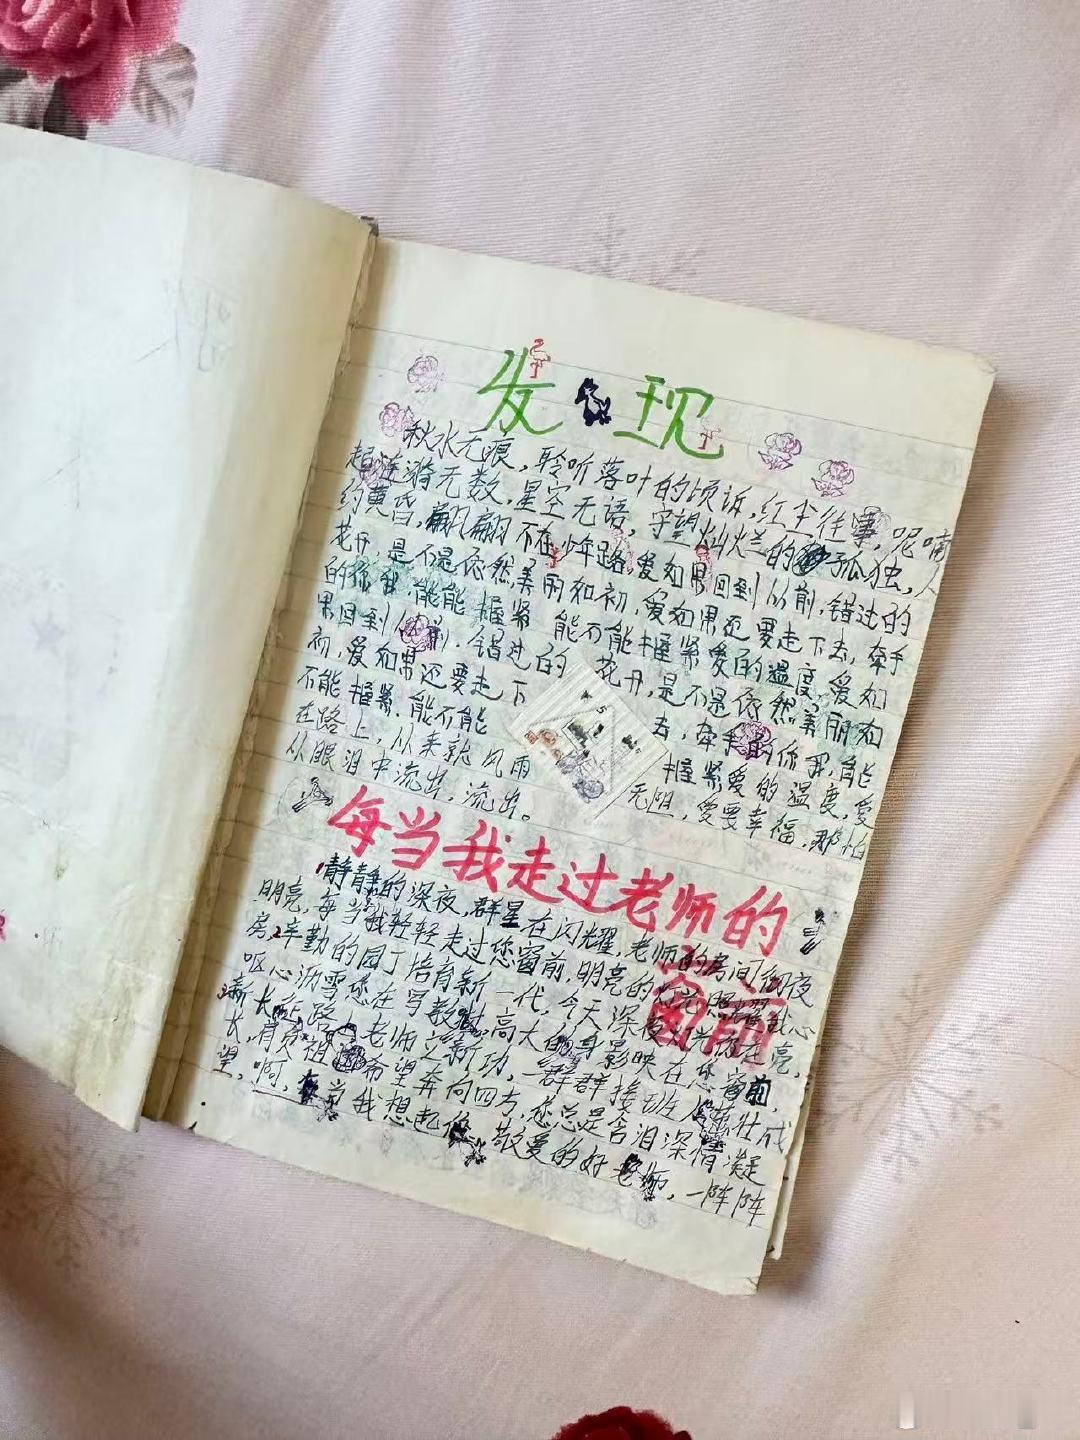 发现
秋水无痕，聆听落叶的顷诉，红尘往事，呢喃
起涟漪无数，星空无语，守望灿烂的孤独，人
约黄昏，翩翩翩不在少年路，爱如果回到从前，错过的
花开，是不是依然美丽如初，爱如果还要走下去，牵手
的你我，能能握紧 能不能握紧爱的温度，爱如
果回到从前，错过的 花开，是不是依然美丽如
初，爱如果还要走下 去，牵手的你我，能
不能握紧，能不能 握紧爱的温度，爱
在路上，从来就风雨 无阻，爱要幸福，那怕
从眼泪中流出，流出。
每当我走过老师的
窗前
静静的深夜，群星在闪耀，老师的房间彻夜
明亮，每当我轻轻走过您窗前，明亮的灯光照耀我心
房，辛勤的园丁培育新一代，今天深夜灯光仍在亮，
呕心沥雪您在写教材，高大的身影映在您窗前，
新长征路上老师立新功，一群群接班人茁壮成
长，肩负祖国希望奔向四方，您总是含泪深情凝
望，啊，每当我想起你，敬爱的好老师，一阵阵